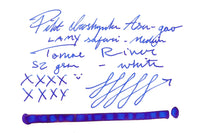 Pilot Iroshizuku Asa-gao
LAMY safari - medium
Tomoe River
52 gsm - white
XXXX
XXXX